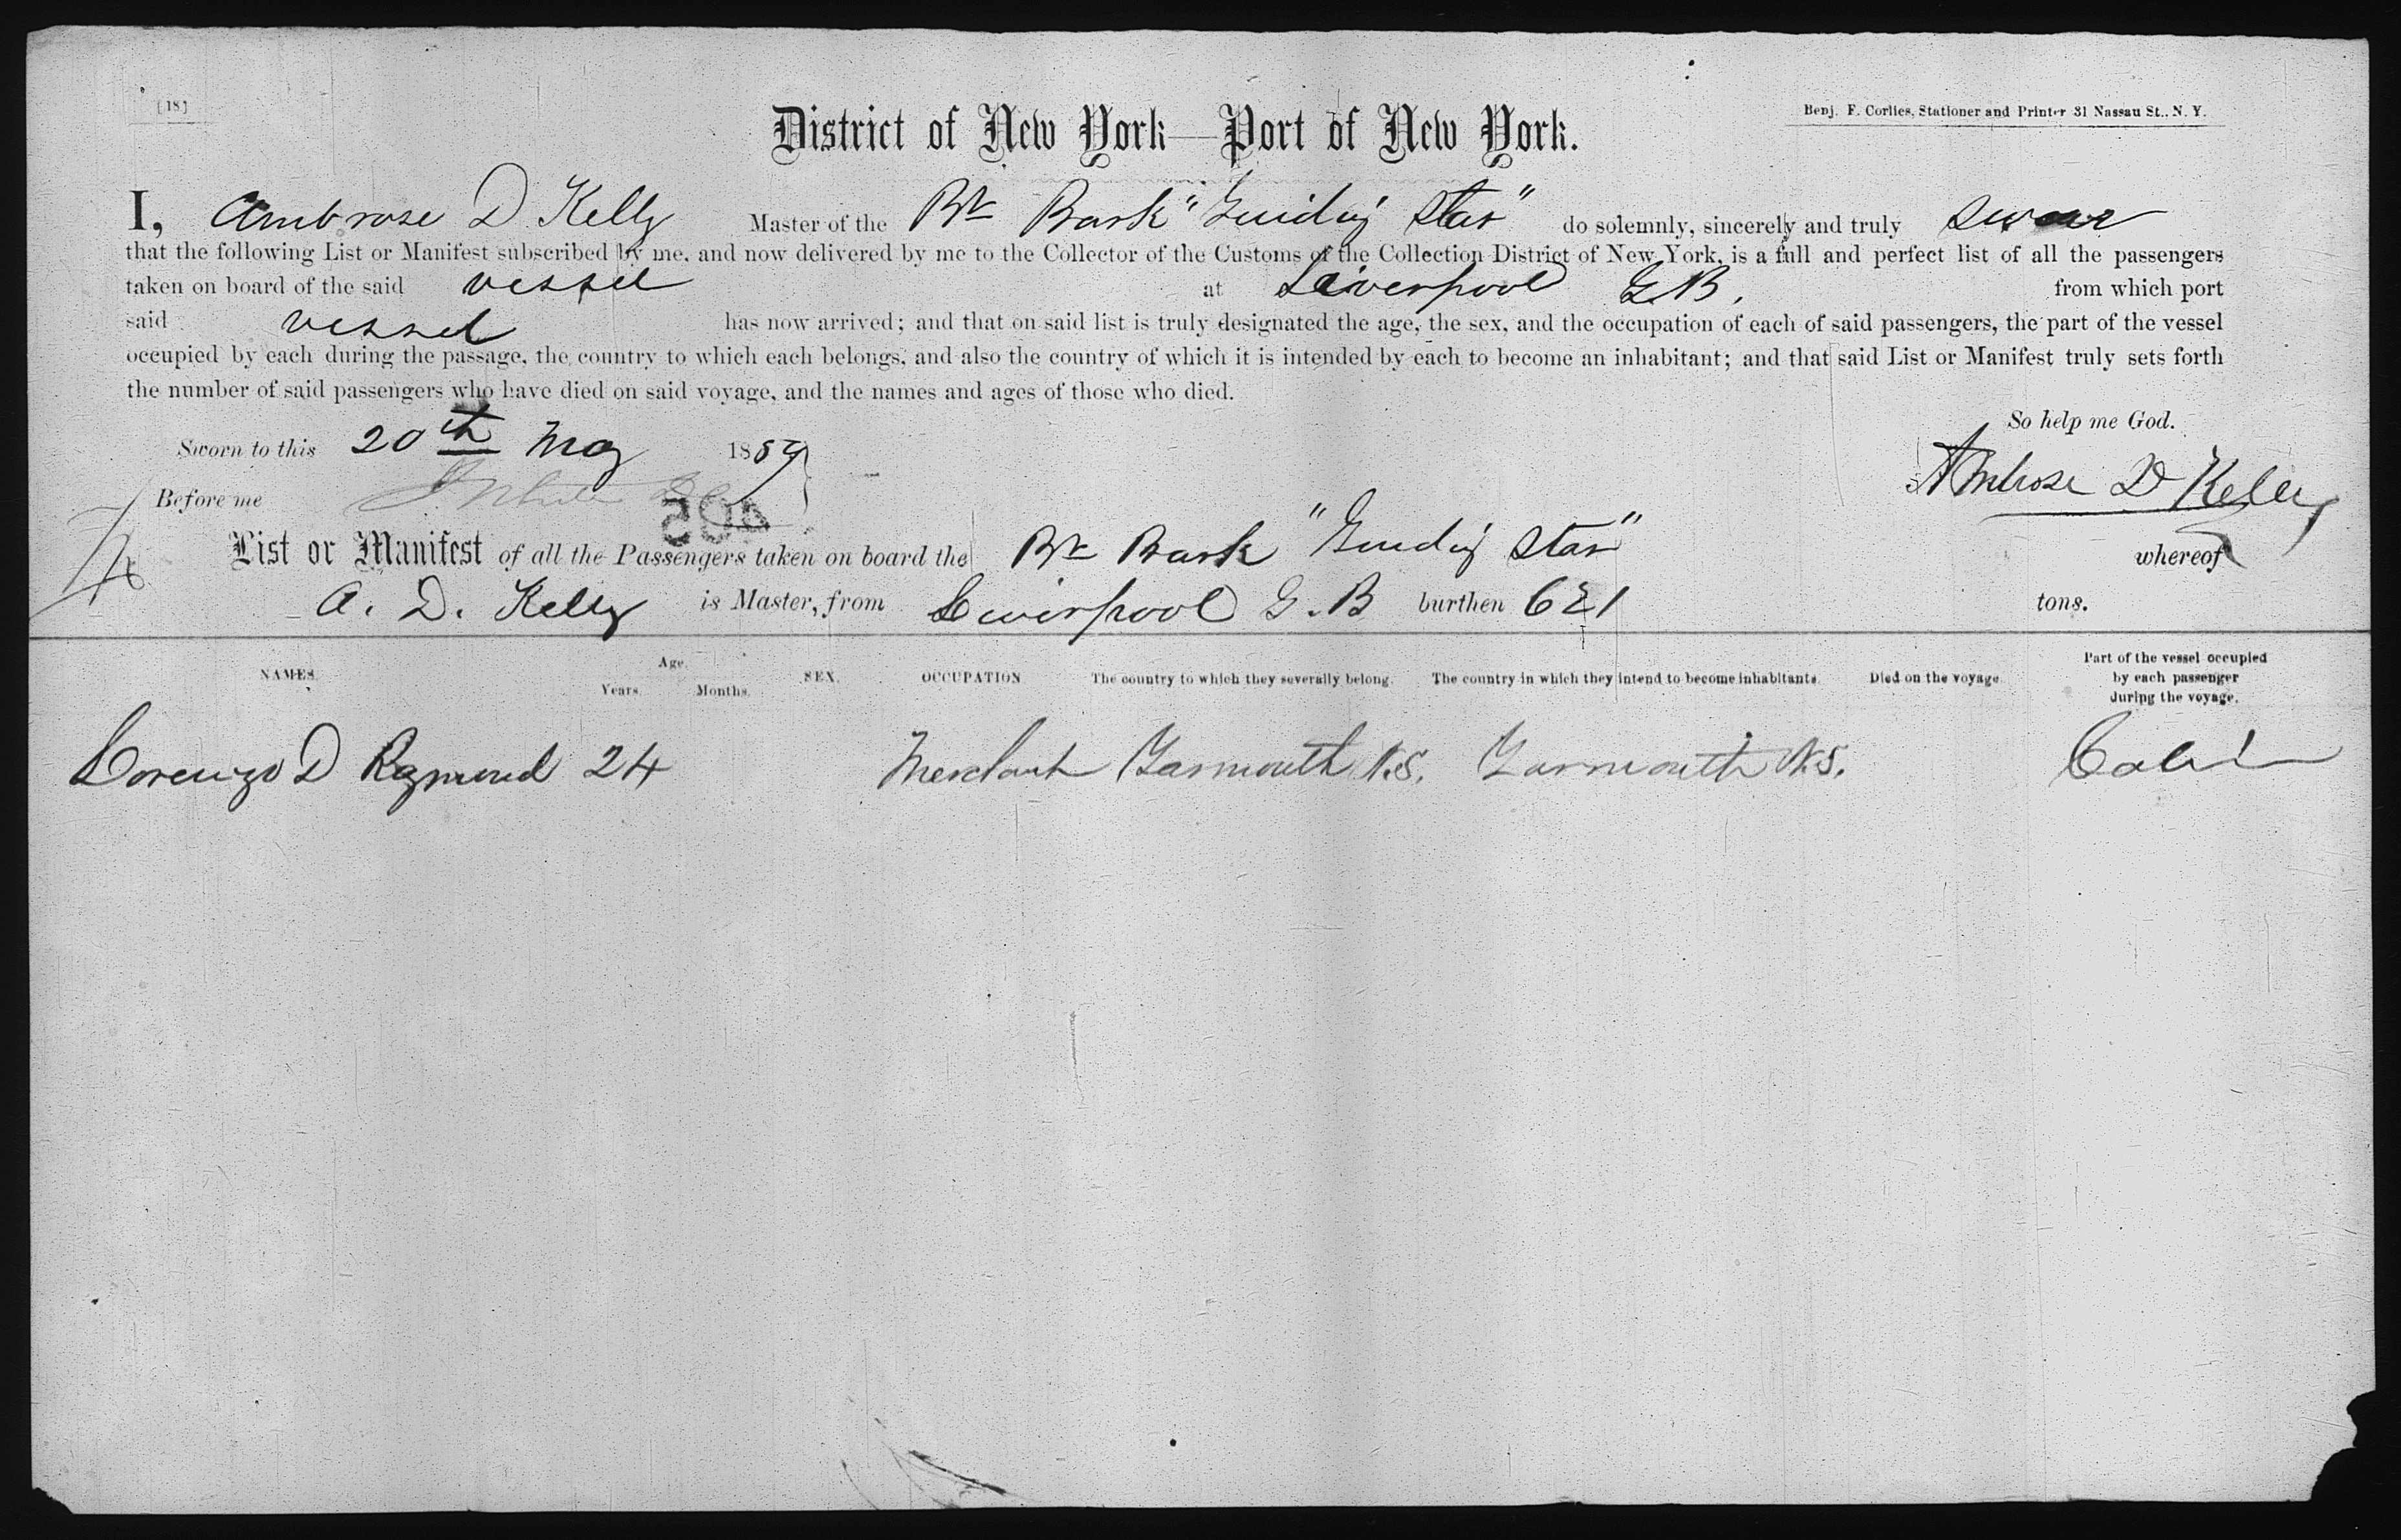 [18]
Benj. F. Corlies, Stationer and Printer 31 Nassau St., N. Y.
District of New York—Port of New York.
I, Ambrose D Kelly Master of the Br Bark "Guiding Star" do solemnly, sincerely and truly swear
that the following List or Manifest subscribed by me, and now delivered by me to the Collector of the Customs of the Collection District of New York, is a full and perfect list of all the passengers
taken on board of the said vessel at Liverpool G.B. from which port
said vessel has now arrived; and that on said list is truly designated the age, the sex, and the occupation of each of said passengers, the part of the vessel
occupied by each during the passage, the country to which each belongs, and also the country of which it is intended by each to become an inhabitant; and that said List or Manifest truly sets forth
the number of said passengers who have died on said voyage, and the names and ages of those who died.
So help me God.
Sworn to this 20th May 1889
Ambrose D Kelly
Before me
594
List or Manifest of all the Passengers taken on board the Br Bark "Guiding Star" whereof
A. D. Kelly is Master, from Liverpool G.B burthen tons.
NAMES. Age. Years. Months. SEX. OCCUPATION The country to which they severally belong. The country in which they intend to become inhabitants. Died on the voyage. Part of the vessel occupied by each passenger during the voyage.
Lorenzo D Raymond 24 Merchant Yarmouth N.S. Yarmouth N.S. Cabin